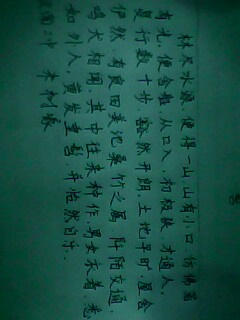 林尽水源,便得一山,山有小口,仿佛若
有光,便舍船从口入,初极狭,才通人,
复行数十步,豁然开朗,土地平旷,屋舍
俨然,有良田美池桑竹之属,阡陌交通,
鸡犬相闻,其中往来种作,男女衣着,悉
如外人,黄发垂髫并怡然自乐.